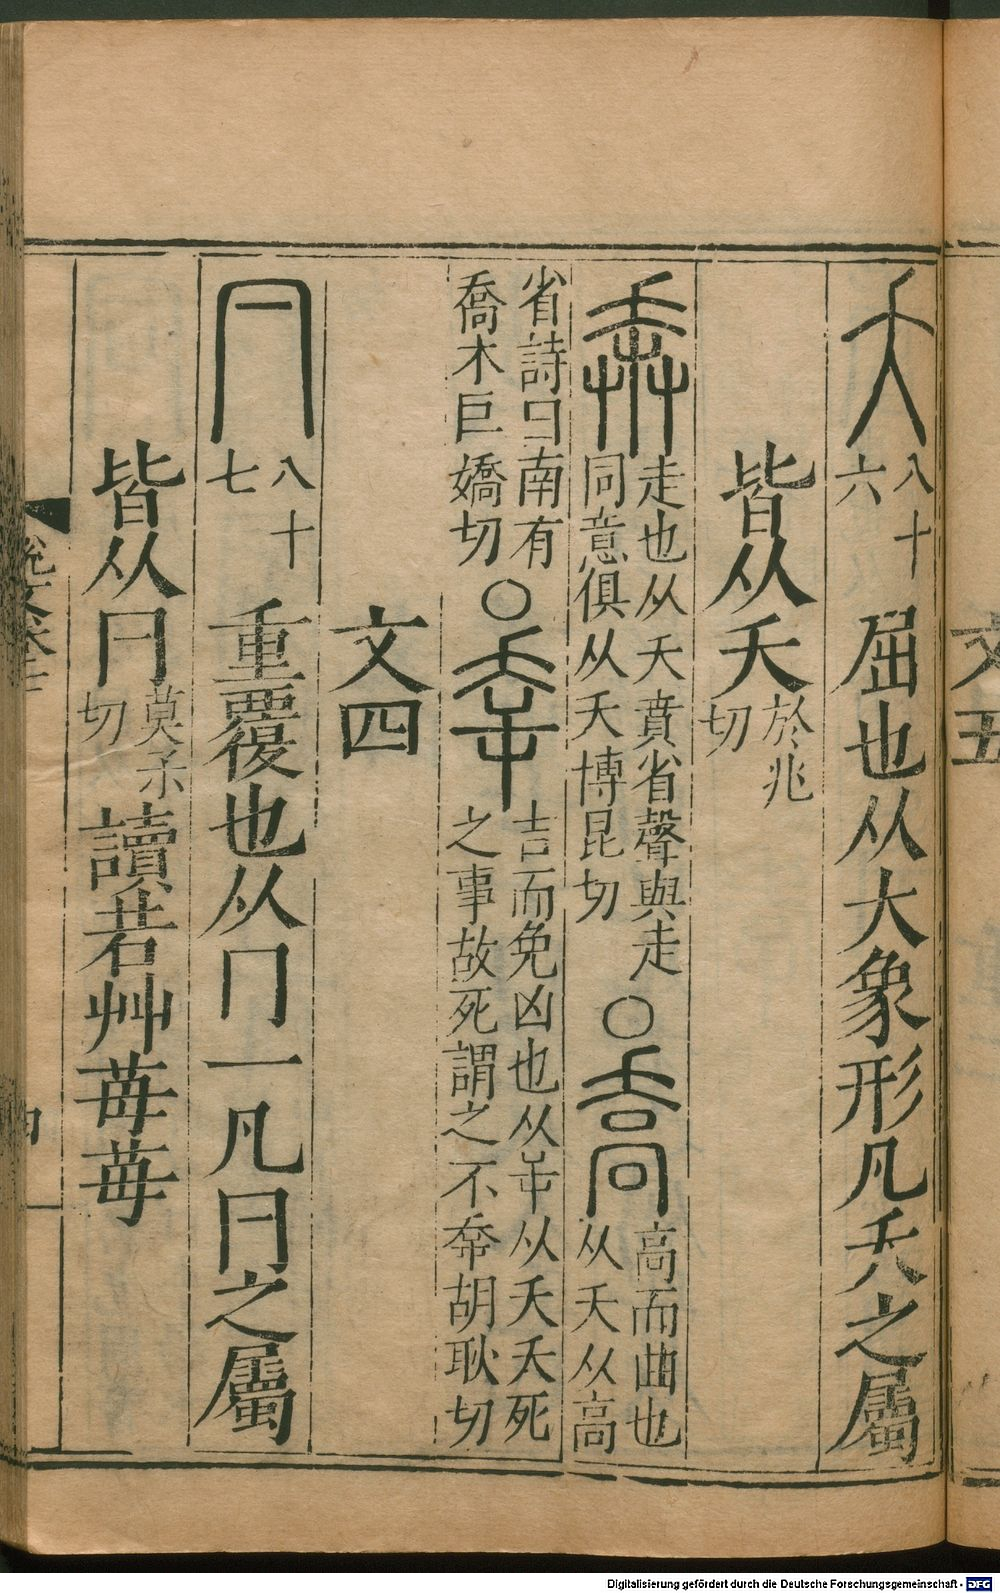 文五
夭八十六屈也从大象形凡夭之屬
皆从夭於兆切
奔走也从夭賁省聲與走同意俱从夭博昆切○喬高而曲也从夭从高
省詩曰南有喬木巨嬌切○㚔吉而免凶也从屰从夭夭死之事故死謂之不㚔胡耿切
文四
𠔼八十七重覆也从冂一凡𠔼之屬
皆从𠔼莫切讀若艸苺苺
說文卷
四
Digitalisierung gefördert durch die Deutsche Forschungsgemeinschaft - DFG